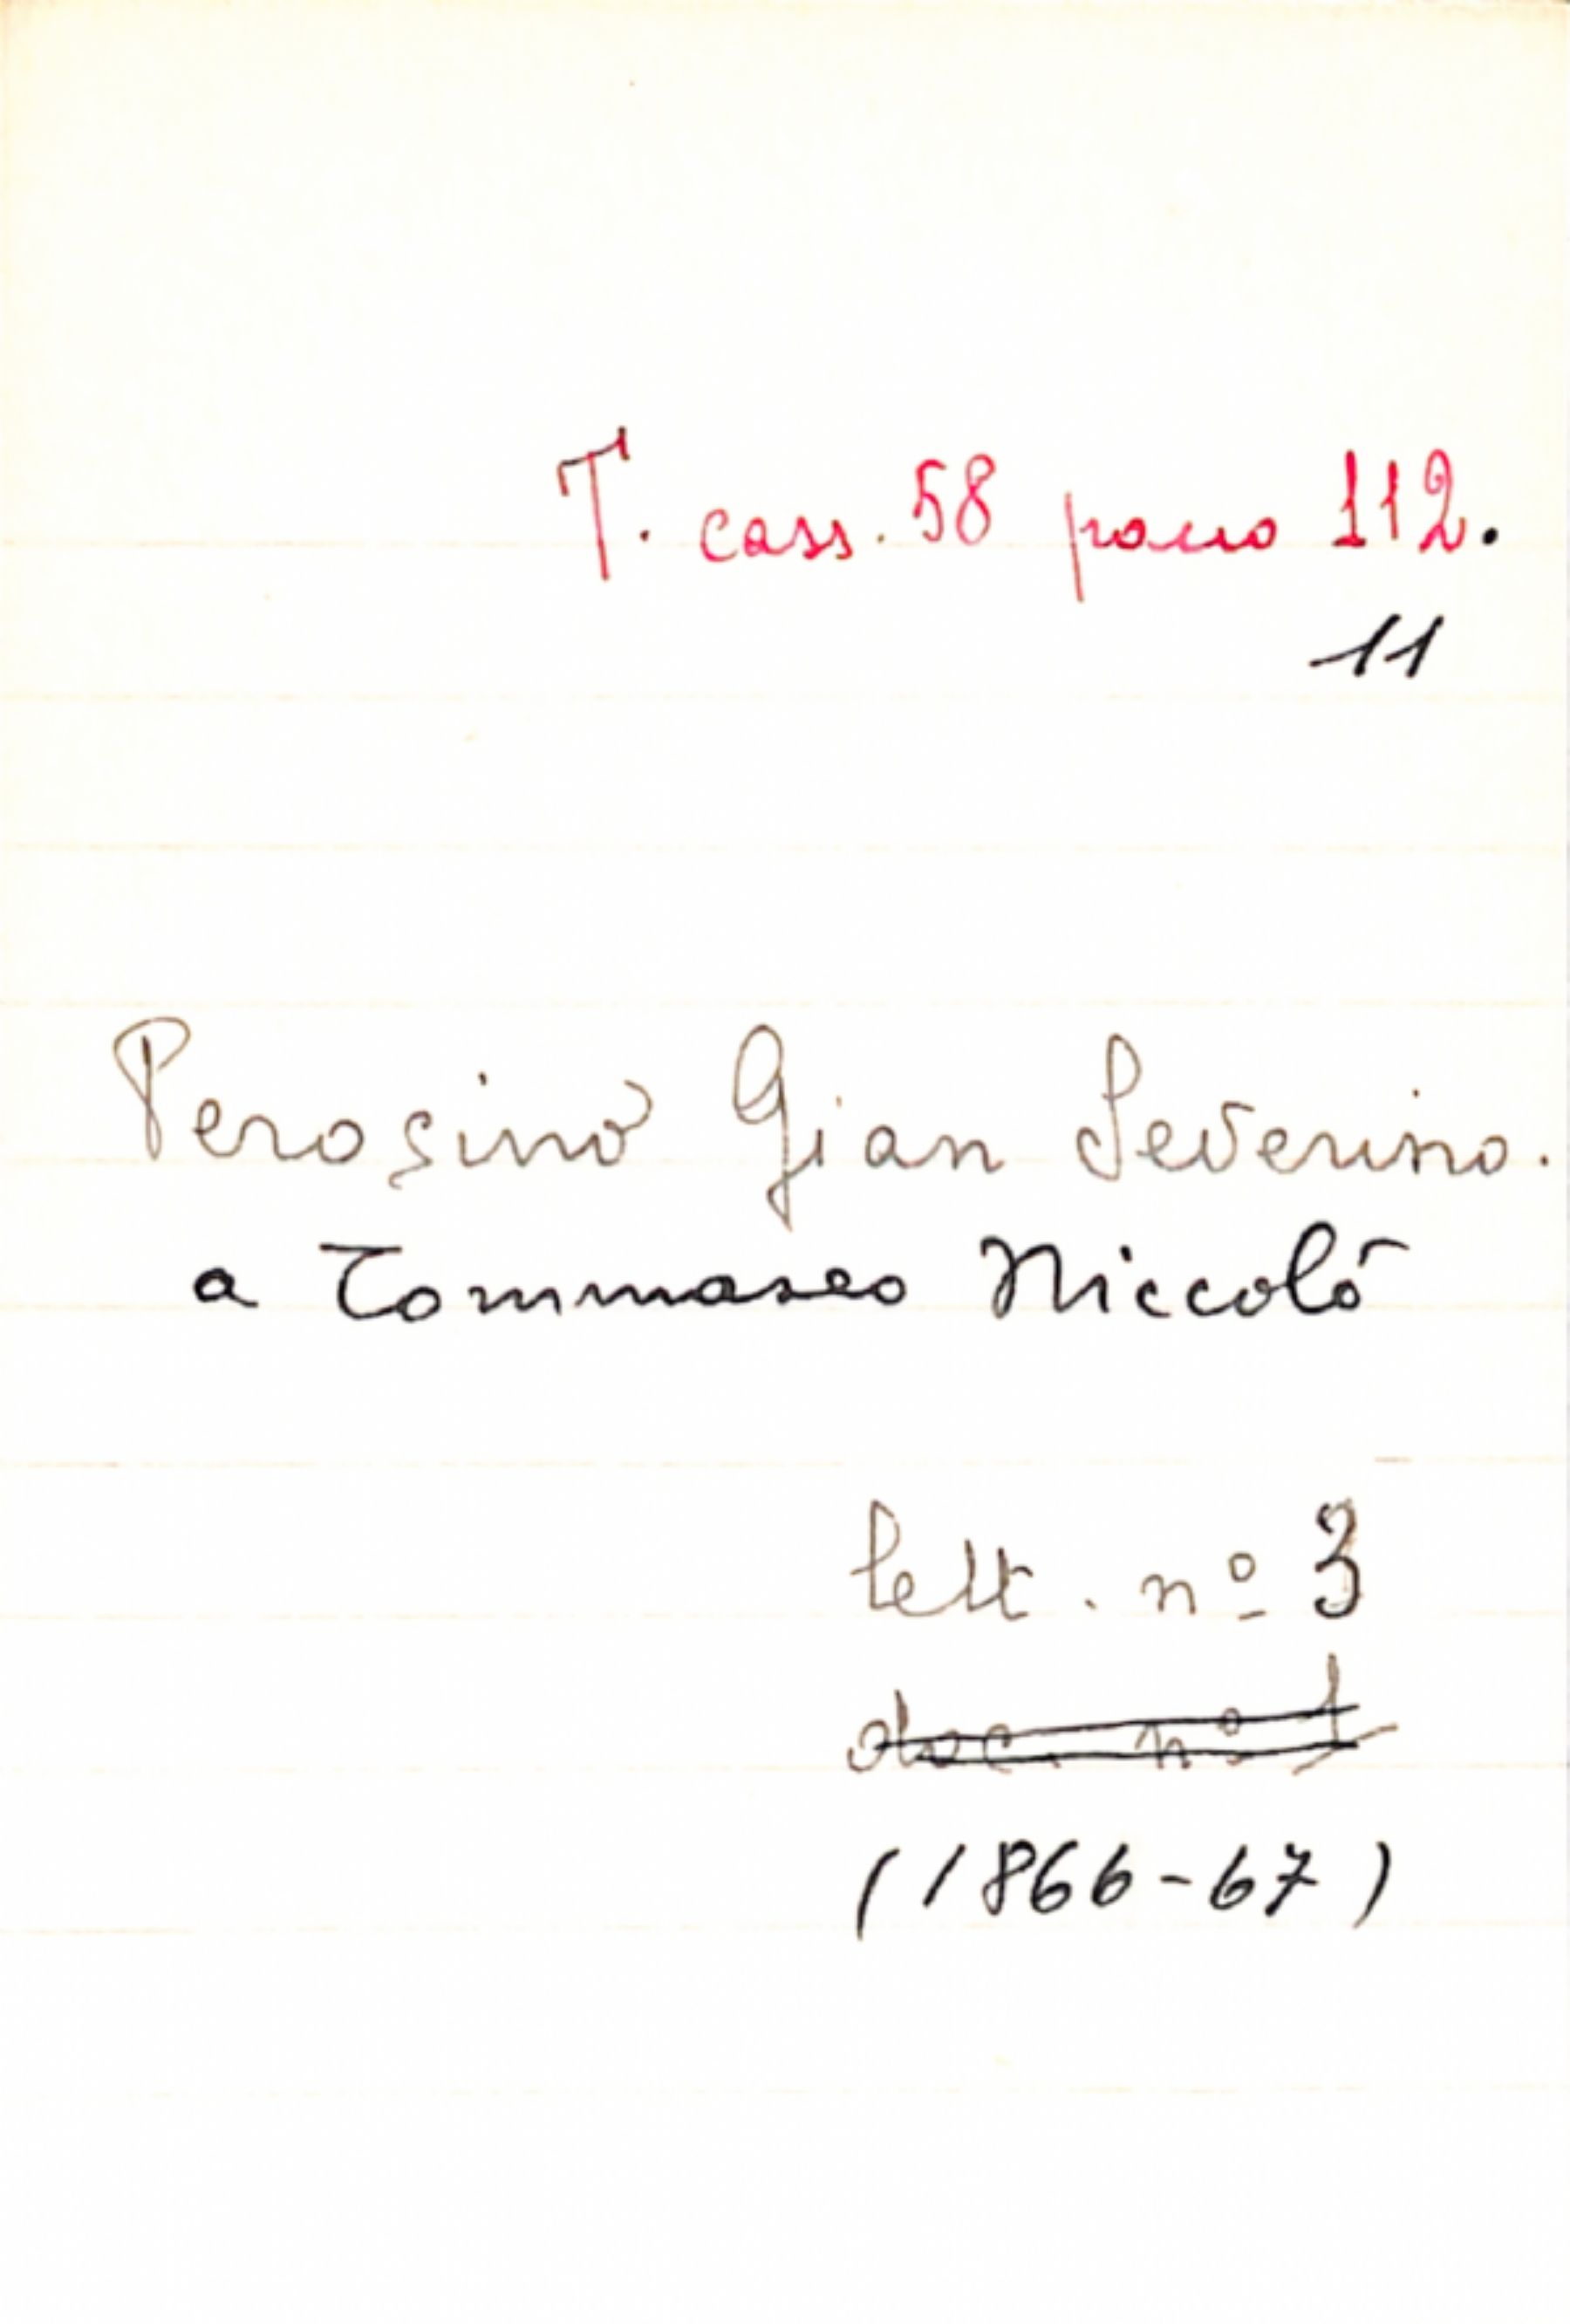 T. cass. 58 pacco 112.
11
Perosino Gian Severino.
a Tommaseo Niccolò
lett. nº 3
doc. nº 1
(1866-67)